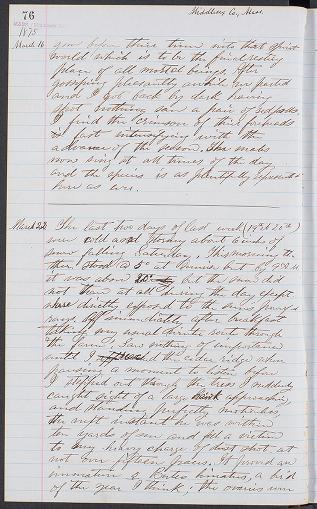 76
Middlesex Co., Mass.
1875
March 16
gone before three times into that spirit
world which is to be the final resting
place of all mortal beings. After
gossiping pleasantly awhile we parted
and I got back by dark having
shot nothing save a pair of red polls.
I find the crimson of their foreheads
is fast intensifying with the
advance of the season. The males
now sing at all times of the day
and the species is as plentifully represented
here as ever.
March 22
The last two days of last week (19th & 20th)
were cold and stormy about 6 inch of
snow falling Saturday. This morning the
ther. stood @ 5° at sunrise but by 9 A.M.
it was above but the sun did
not thaw at all during the day except
where directly exposed to the sun's
rays. Immediately after breakfast
taking my usual route through
the farm, I saw nothing of importance
until I reached the cedar ridge when
pausing a moment to listen before
I stepped out through the trees I suddenly
caught sight of a large hawk approaching,
and standing perfectly motionless,
the next instant he was within
ten yards of me and fell a victim
to my heavy charge of dust shot at
not over fifteen paces. It proved an
immature Buteo lineatus, a bird
of the year I think; the ovaries were